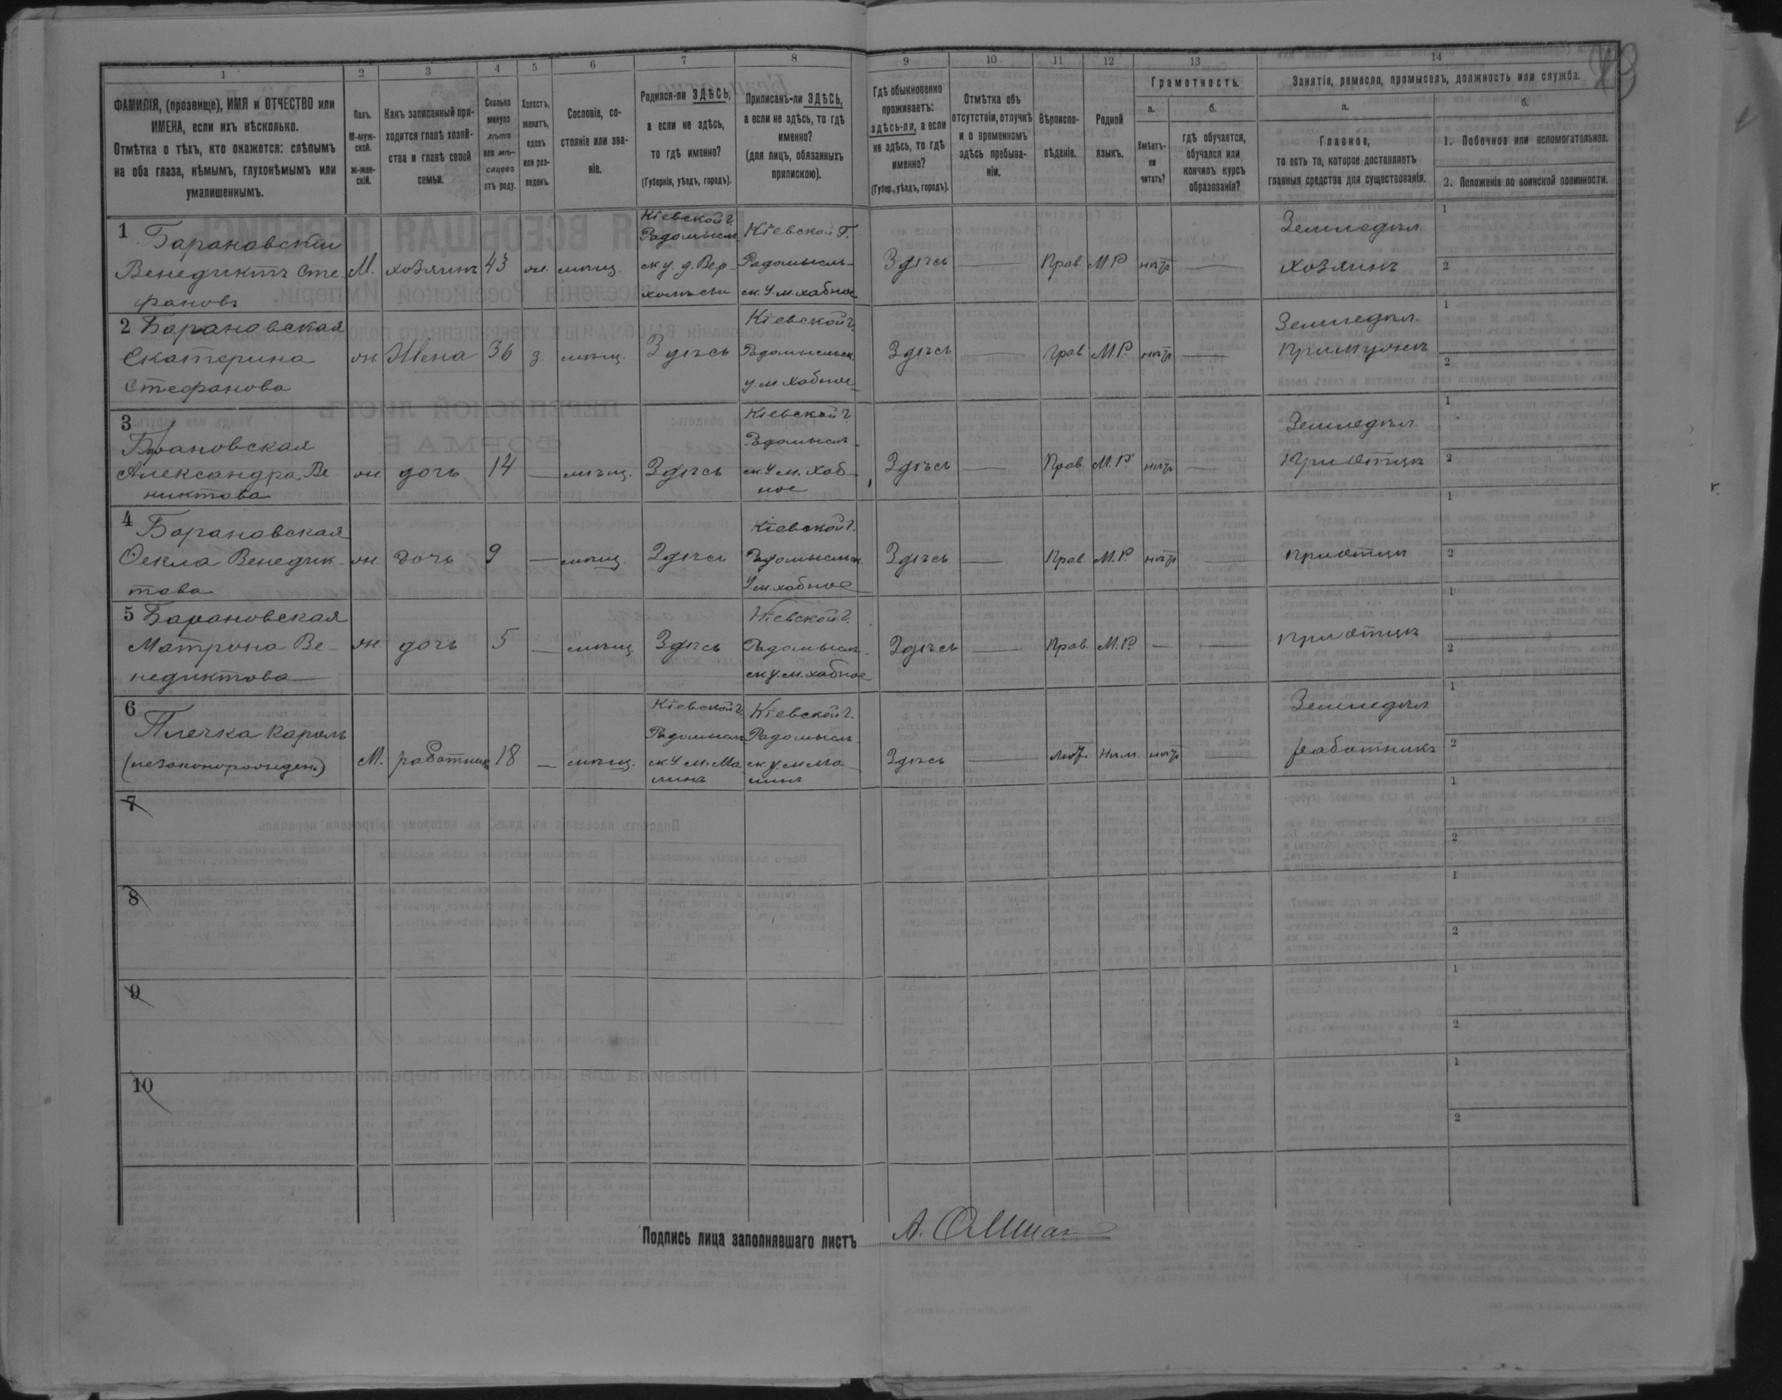 1 2 3 4 5 6 7 8 9 10 11 12 13 14
ФАМИЛІЯ, (прозвище), ИМЯ и ОТЧЕСТВО или
ИМЕНА, если ихъ нѣсколько.
Отмѣтка о тѣхъ, кто окажется: слѣпымъ
на оба глаза, нѣмымъ, глухонѣмымъ или
умалишеннымъ.
Полъ.
М-муж-
ской.
Ж-жен-
скій.
Какъ записанный при-
ходится главѣ хозяй-
ства и главѣ своей
семьи.
Сколько
минуло
лѣтъ
или мѣ-
сяцевъ
отъ роду.
Холостъ,
женатъ,
вдовъ
или раз-
веденъ.
Сословіе, со-
стояніе или зва-
ніе.
Родился-ли ЗДѢСЬ,
а если не здѣсь,
то гдѣ именно?
(Губернія, уѣздъ, городъ).
Приписанъ-ли ЗДѢСЬ,
а если не здѣсь, то гдѣ
именно?
(для лицъ, обязанныхъ
припискою).
Гдѣ обыкновенно
проживаетъ:
здѣсь-ли, а если
не здѣсь, то гдѣ
именно?
(Губер., уѣздъ, городъ).
Отмѣтка объ
отсутствіи, отлучкѣ
и о временномъ
здѣсь пребыва-
ніи.
Вѣроиспо-
вѣданіе.
Родной
языкъ.
Грамотность.
а.
Умѣетъ-
ли
читать?
б.
гдѣ обучается,
обучался или
кончилъ курсъ
образованія?
Занятіе, ремесло, промыселъ, должность или служба.
а.
Главное,
то есть то, которое доставляетъ
главныя средства для существованія.
б.
1. Побочное или вспомогательное.
2. Положеніе по воинской повинности.
1 Барановскій
Венедиктъ Сте
фановъ
М. хозяинъ 43 жн. мѣщ.
Кіевской г.
Радомысл
ск. у. д. Вер-
Кіевской г.
Радомысль-
ск. у. м. хабное
Здѣсь — Прав М.Р. нѣтъ —
Земледѣл.
хозяинъ
1
2
2 Барановская
Екатерина
Стефанова
ж Жена 36 з. мѣщ. Здѣсь
Кіевской г.
Радомысльск
у м. хабное
Здѣсь — Прав М.Р. нѣтъ —
Земледѣл.
при мужѣ
1
2
3
Барановская
Александра Ве
никтова
ж дочь 14 — мѣщ. Здѣсь
Кіевской г.
Радомысл-
ск. у м. Хаб-
ное
Здѣсь — Прав. М.Р. нѣтъ —
Земледѣл.
При отцѣ
1
2
4 Барановская
Фекла Венедик-
това
ж дочь 9 — мѣщ. Здѣсь
Кіевской г.
Радомысльск
у м. хабное
Здѣсь — Прав. М.Р. нѣтъ —
при отцѣ
1
2
5 Барановская
Матрона Ве-
недиктова
ж дочь 5 — мѣщ Здѣсь
Кіевской г.
Радомысл-
ск у. м. хабное
Здѣсь — Прав. М.Р. — —
при отцѣ
1
2
6
Плечка Кароль
(незаконорожден.)
М. работникъ 18 — мѣщ.
Кіевской г.
Радомысл
ск у м. Ма
линъ
Кіевской г.
Радомысл-
ск у м Ма-
линъ
Здѣсь — Лют. Нѣм. нѣтъ —
Земледѣл
работникъ
1
2
7
1
2
8
1
2
9
1
2
10
1
2
Подпись лица заполнявшаго листъ